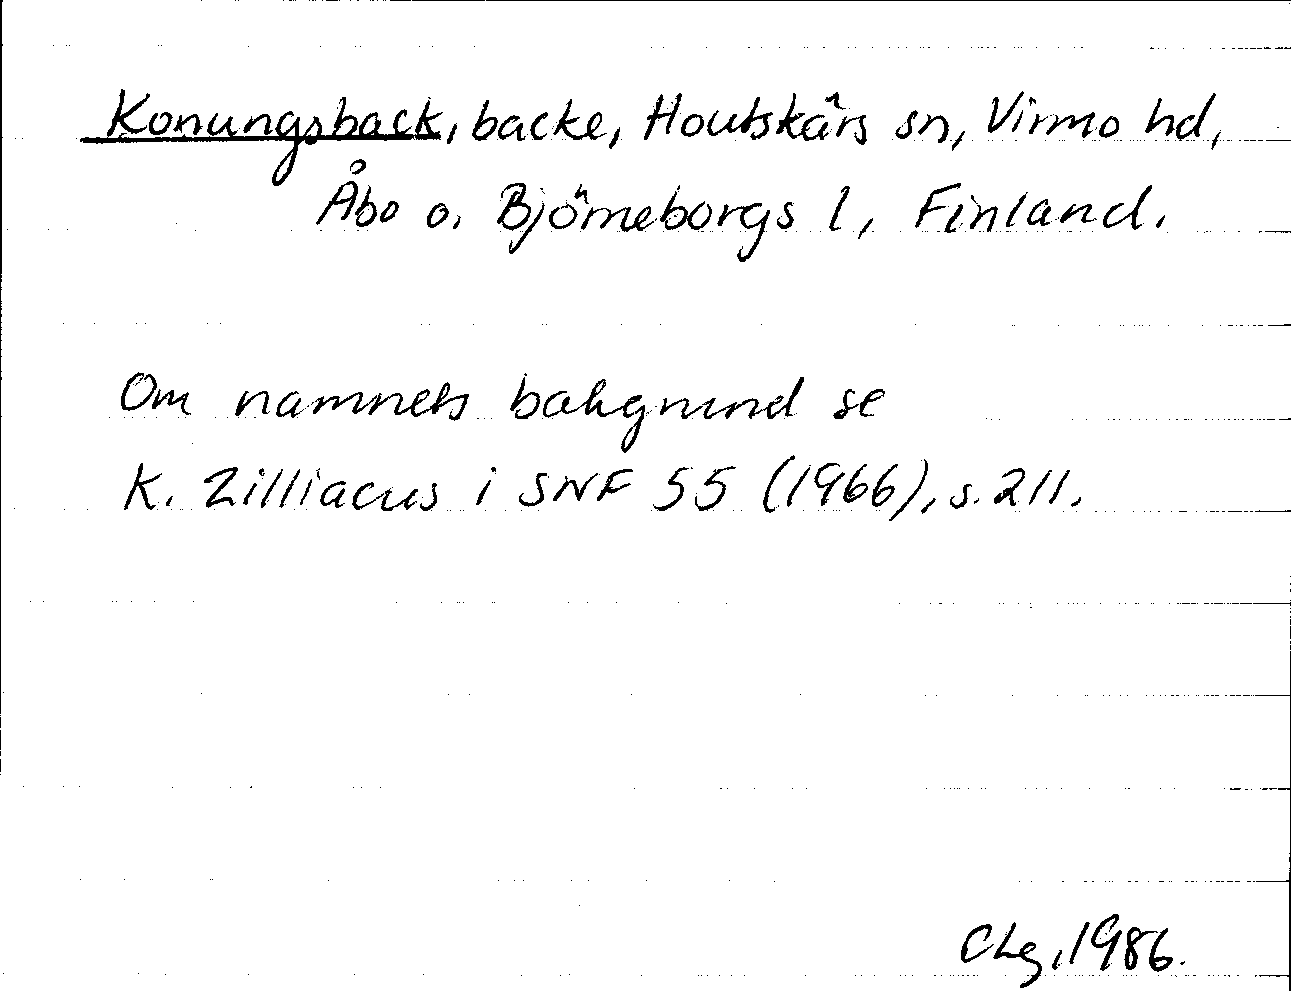 Konungsback, backe, Houtskärs sn, Virmo hd,
Åbo o. Björneborgs l, Finland.
Om namnets bakgrund se
K. Zilliacus i SNF 55 (1966), s. 211.
CLg, 1986.